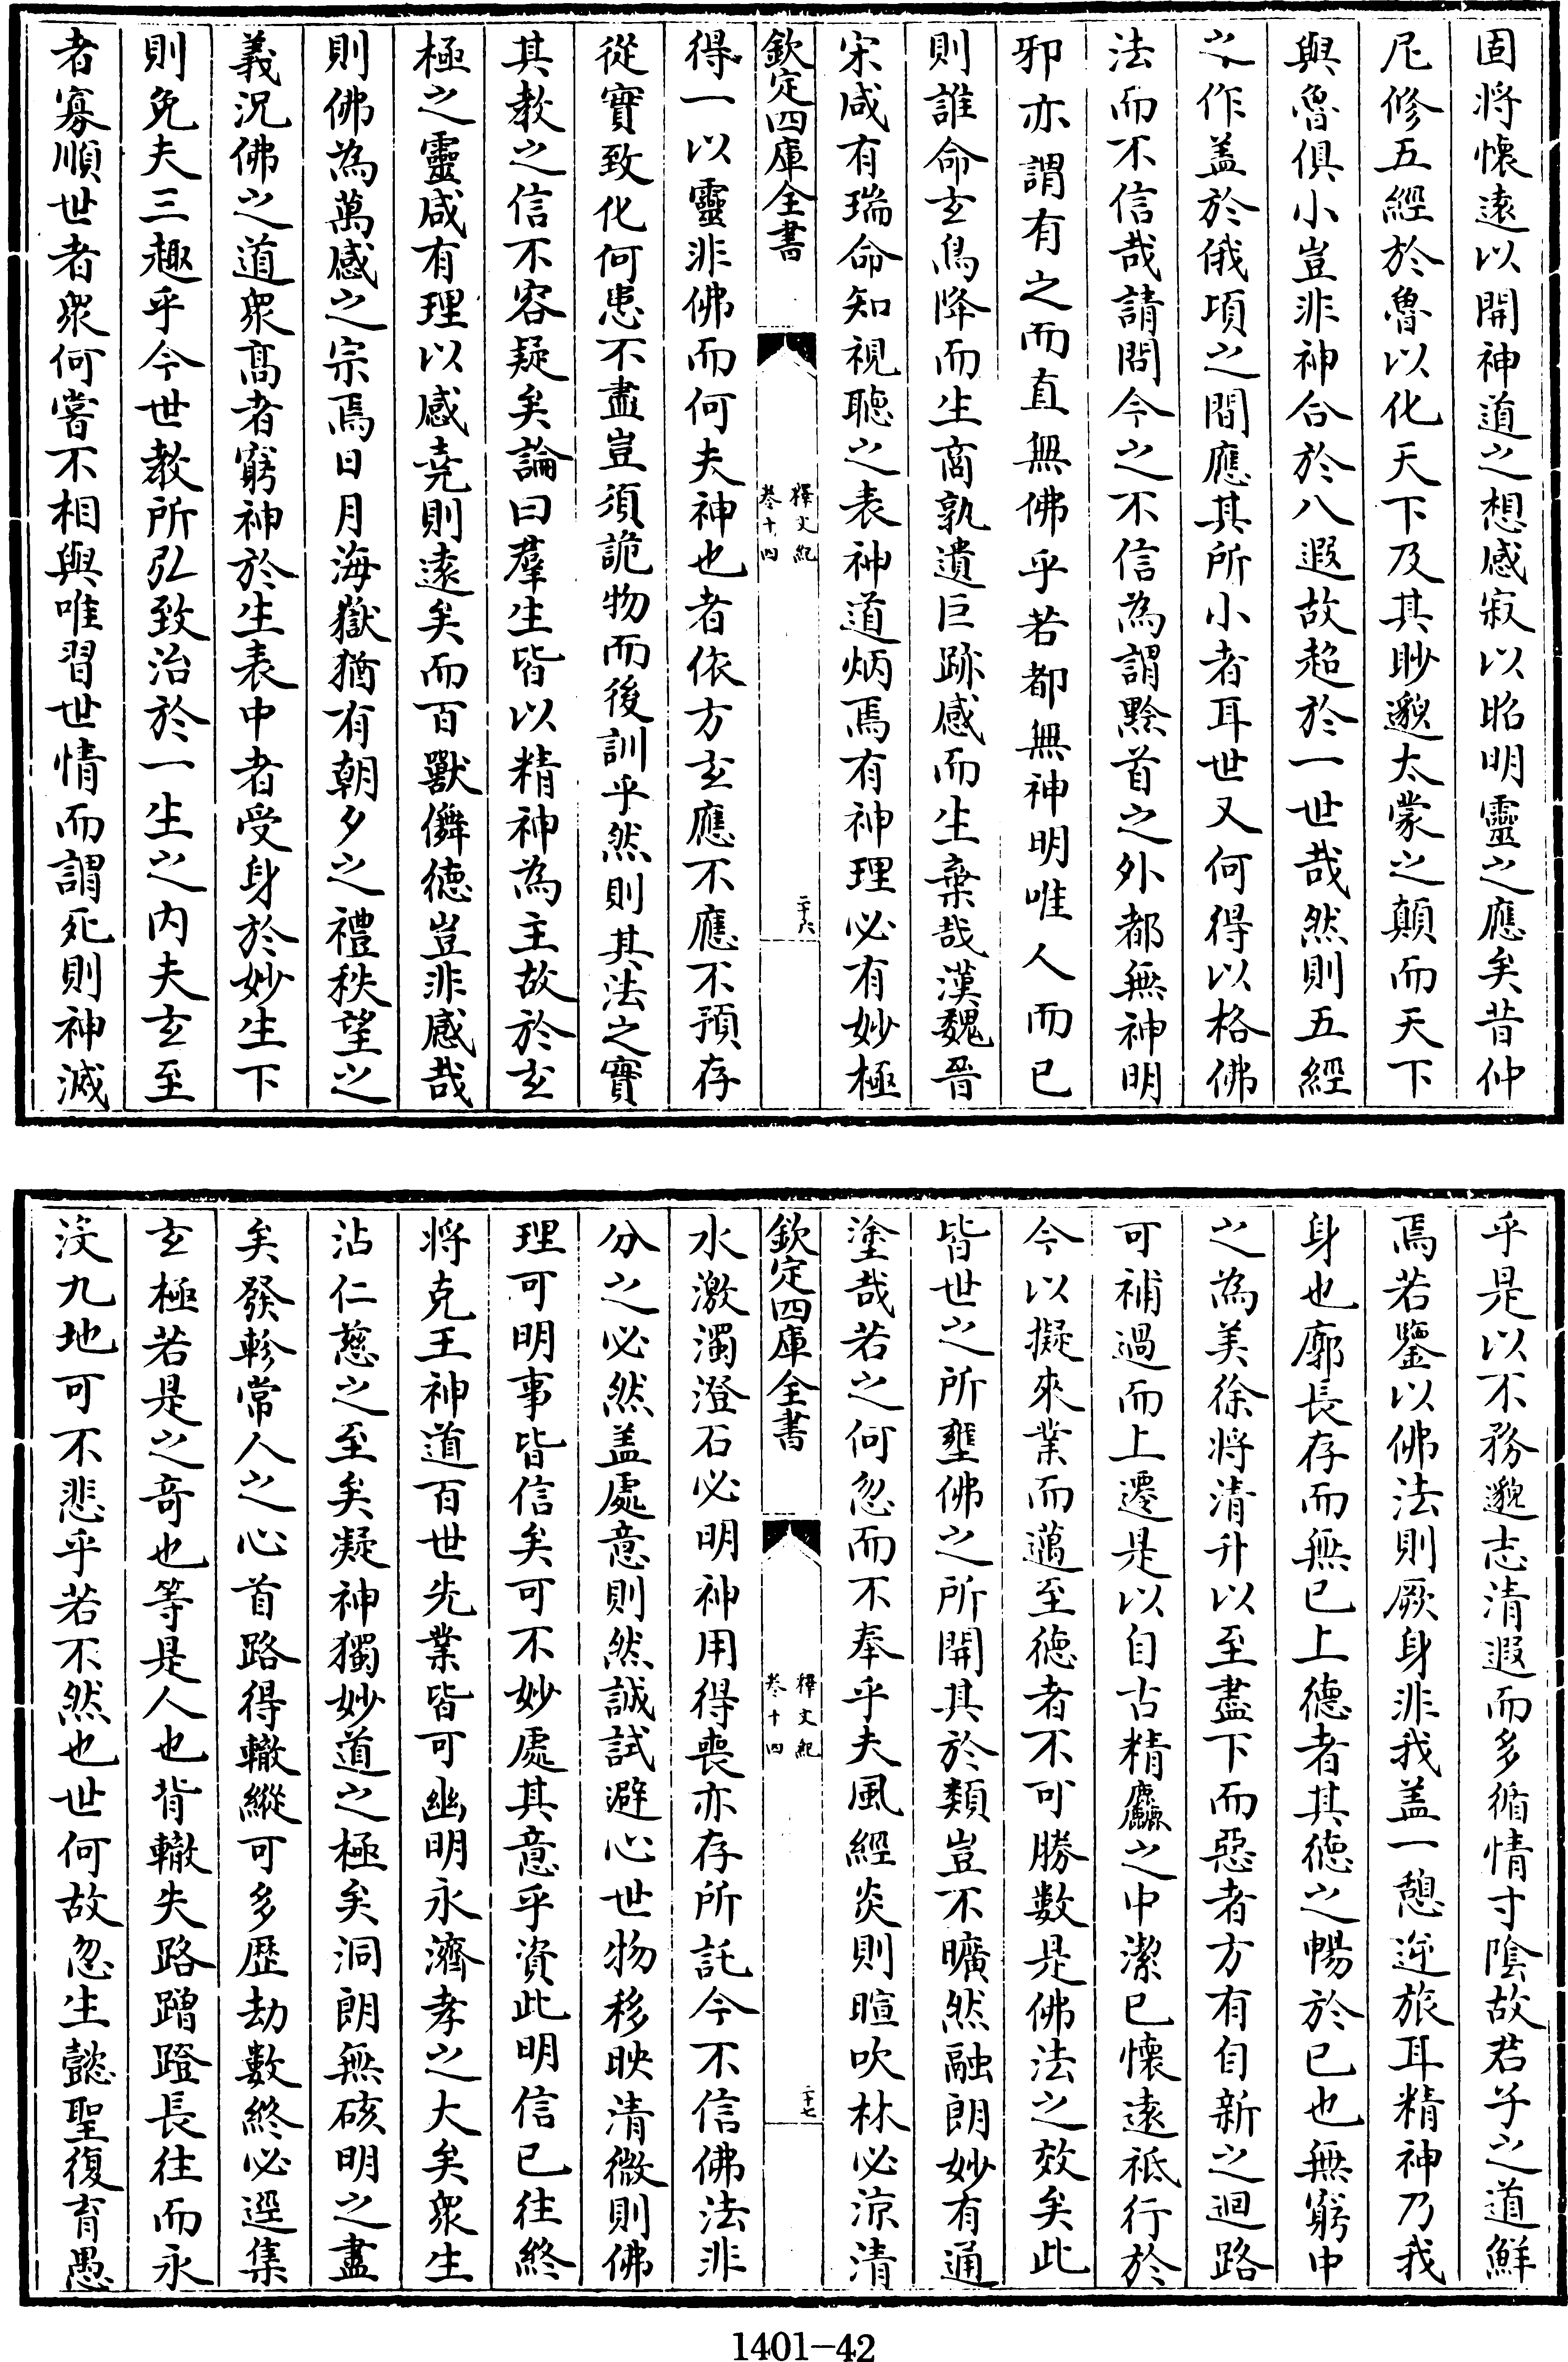 固將懷遠以開神道之想感寂以昭明靈之應矣昔仲
尼修五經於魯以化天下及其眇邈太蒙之顛而天下
與魯俱小豈非神合於八遐故超於一世哉然則五經
之作盖於俄頃之間應其所小者耳世又何得以格佛
法而不信哉請問今之不信為謂黔首之外都無神明
邪亦謂有之而直無佛乎若都無神明唯人而已
則誰命玄鳥降而生商孰遺巨跡感而生棄哉漢魏晉
宋咸有瑞命知視聽之表神道炳焉有神理必有妙極
欽定四庫全書
釋文紀
卷十四
二十六
得一以靈非佛而何夫神也者依方玄應不應不預存
從實致化何患不盡豈須詭物而後訓乎然則其法之實
其教之信不容疑矣論曰羣生皆以精神為主故於玄
極之靈咸有理以感堯則遠矣而百獸儛德豈非感哉
則佛為萬感之宗焉日月海嶽猶有朝夕之禮秩望之
義況佛之道衆髙者窮神於生表中者受身於妙生下
則免夫三趣乎今世教所弘致治於一生之内夫玄至
者寡順世者衆何嘗不相與唯習世情而謂死則神滅
乎是以不務邈志清遐而多循情寸陰故君子之道鮮
焉若鑒以佛法則厥身非我盖一憩逆旅耳精神乃我
身也廓長存而無已上德者其德之暢於已也無窮中
之為美徐將清升以至盡下而惡者方有自新之迴路
可補過而上遷是以自古精麤之中潔已懷遠祇行於
今以擬來業而邁至德者不可勝數是佛法之效矣此
皆世之所壅佛之所開其於類豈不曠然融朗妙有通
塗哉若之何忽而不奉乎夫風經炎則暄吹林必涼清
欽定四庫全書
釋文紀
卷十四
二十七
水激濁澄石必明神用得喪亦存所託今不信佛法非
分之必然盖處意則然誠試避心世物移映清微則佛
理可明事皆信矣可不妙處其意乎資此明信已往終
將克王神道百世先業皆可幽明永濟孝之大矣衆生
沾仁慈之至矣凝神獨妙道之極矣洞朗無硋明之盡
矣發軫常人之心首路得轍縱可多歴劫數終必逕集
玄極若是之竒也等是人也背轍失路蹭蹬長往而永
没九地可不悲乎若不然也世何故忽生懿聖復育愚
1401-42